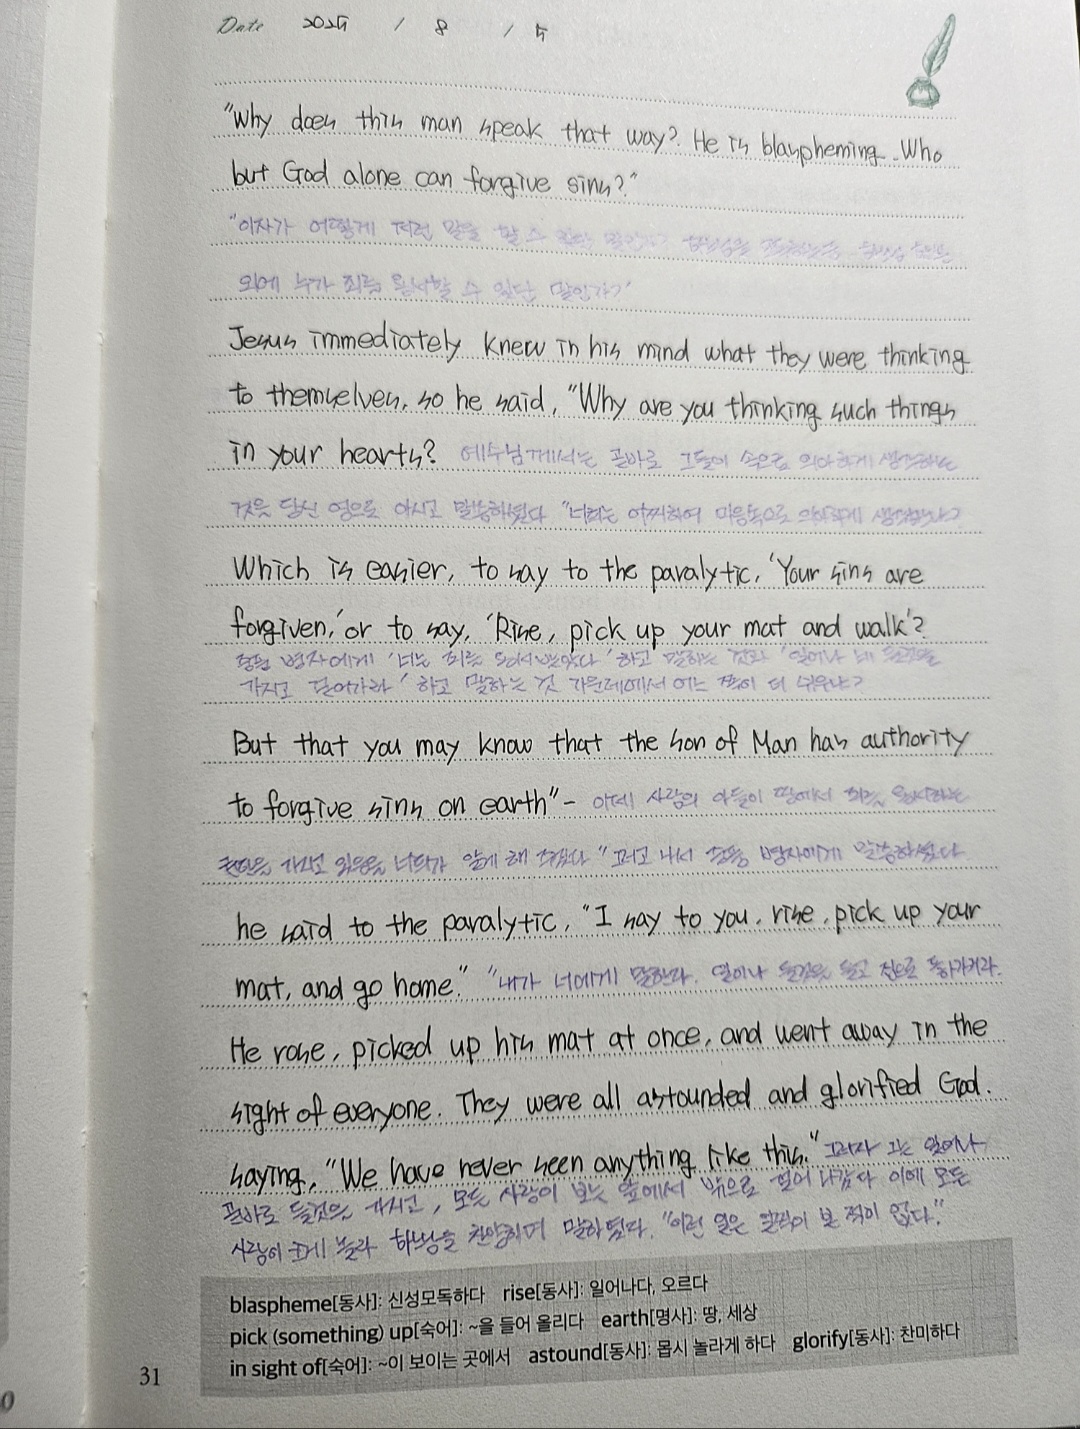 Date 2025 / 8 / 5
"Why does this man speak that way? He is blaspheming. Who
but God alone can forgive sins?"
"이자가 어떻게 저런 말을 할 수 있단 말인가?
외에 누가 죄를 용서할 수 있단 말인가?"
Jesus immediately knew in his mind what they were thinking
to themselves, so he said, "Why are you thinking such things
in your hearts? 예수님께서는 곧바로 그들이 속으로 의아하게 생각하는
것을 당신 영으로 아시고 말씀하셨다 "너희는 어찌하여 마음속으로 의아하게 생각하느냐?
Which is easier, to say to the paralytic, 'Your sins are
forgiven,' or to say, 'Rise, pick up your mat and walk'?
중풍 병자에게 '너는 죄를 용서받았다' 하고 말하는 것과 '일어나 네 들것을
가지고 걸어가라' 하고 말하는 것 가운데에서 어느 쪽이 더 쉬우냐?
But that you may know that the son of Man has authority
to forgive sins on earth"- 이제 사람의 아들이 땅에서 죄를 용서하는
권한을 가지고 있음을 너희가 알게 해 주겠다 " 그러고 나서 중풍 병자에게 말씀하셨다
he said to the paralytic, "I say to you, rise, pick up your
mat, and go home." "내가 너에게 말한다. 일어나 들것을 들고 집으로 돌아가거라.
He rose, picked up his mat at once, and went away in the
sight of everyone. They were all astounded and glorified God.
saying, "We have never seen anything like this." 그러자 그는 일어나
곧바로 들것을 가지고, 모든 사람이 보는 앞에서 밖으로 걸어 나갔다 이에 모든
사람이 크게 놀라 하느님을 찬양하며 말하였다. "이런 일은 일찍이 본 적이 없다."
blaspheme[동사]: 신성모독하다 rise[동사]: 일어나다, 오르다
pick (something) up[숙어]: ~을 들어 올리다 earth[명사]: 땅, 세상
in sight of[숙어]: ~이 보이는 곳에서 astound[동사]: 몹시 놀라게 하다 glorify[동사]: 찬미하다
31